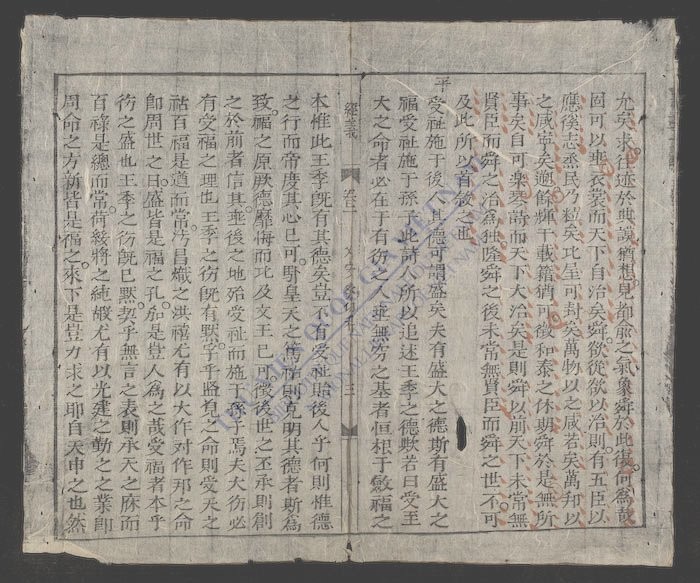 允矣求往迹於典謨猶想見都俞之氣象舜於此復何為哉
固可以垂衣裳而天下自治矣舜欲從欲以治則有五臣以
應徯志烝民乃粒矣比屋可封矣萬物以之咸若矣萬邦以
之咸寧矣遡餘輝于載籍猶可徵和泰之休期舜於是無所
事矣自可樂琴詩而天下大治矣是則舜以前天下未常無
賢臣而舜之治為独隆舜之後未常無賢臣而舜之世不可
及此所以首敘之也
平
受祉施于後人其德可謂盛矣夫有盛大之德斯有盛大之
福受祉施于孫子此詩人所以追述王季之德歟若曰受至
大之命者必在于有彷之人垂無穷之基者恒根于斂福之
經義 卷二 三
本惟此王季既有其德矣豈不有受祉貽後人乎何則惟德
之行而帝度其心已可對皇天之篤怙則克明其德者斯為
致福之原厥德靡悔而比及文王已可後後世之丕承則創
之於前者信其垂後之地殆受祉而施于孫子焉夫大彷必
有受福之理也王季之彷既有默孚乎監覓之命則受天之
祜百福是道而常巧昌熾之洪禧尤有以大作对作邦之命
即周世之日盛皆是福之孔加是豈人為之哉受福者本乎
彷之盛也王季之彷既已默契乎無言之表則承天之庥而
百祿是總而常荷綏將之純嘏尤有以光建之勤之之業即
周命之方新皆是福之來下是豈力求之耶自天申之也然